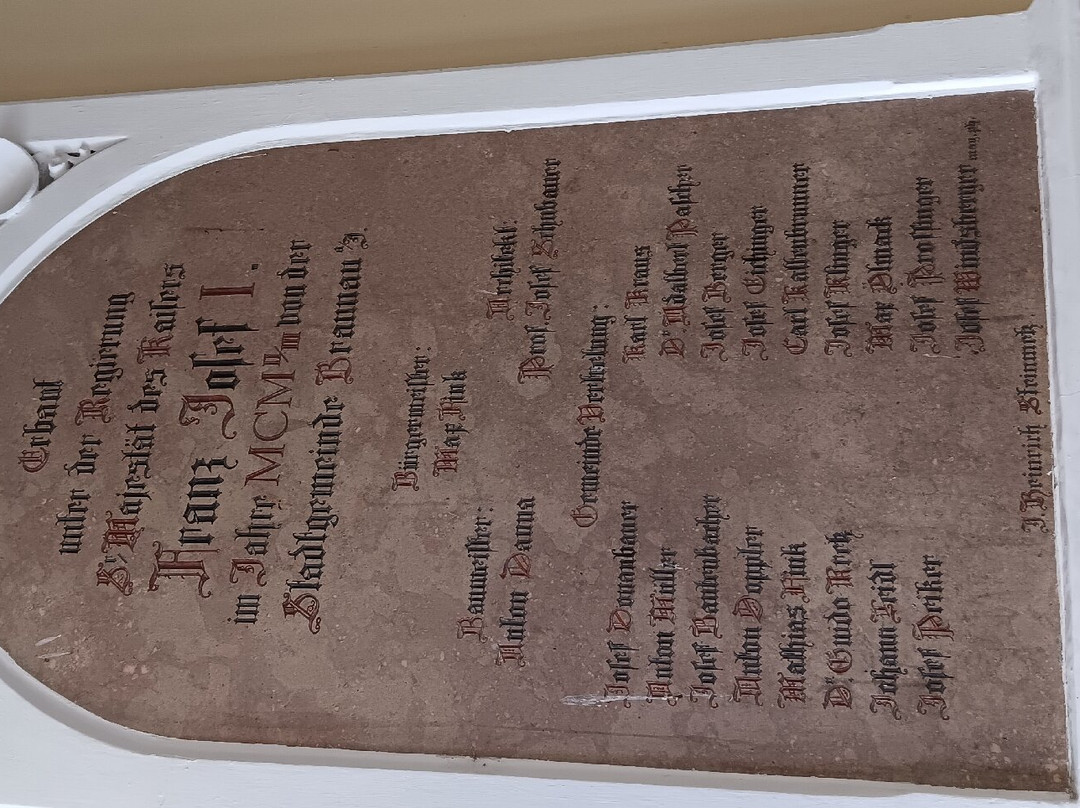 Erbaut
unter der Regierung
Sr Majestät des Kaisers
Franz Josef I.
im Jahre MCMI/III von der
Stadtgemeinde Braunau a/I.
Bürgermeister:
Max Fink
Baumeister:
Anton Danna
Architekt:
Prof. Josef Schobauer
Gemeinde Vertretung:
Josef Donaubauer
Anton Müller
Josef Baudenbacher
Anton Doppler
Mathias Fink
Dr Guido Kreiß
Johann Leidl
Josef Perker
Karl Kraus
Dr Adalbert Pascher
Josef Berger
Josef Eichinger
Carl Kaltenbrunner
Josef Klinger
Max Ölmack
Josef Promssinger
Josef Windsberger mag. ph.
J. Heinrich Blemmich.